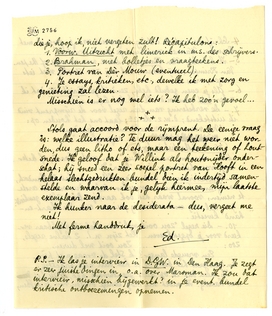 die je, hoop ik, niet vergeten zult! Recapitulons:
1. Vrouw. Utrecht met limerick in ms. des schrijvers.
2. Brahman, met dolletjes en vraagteekens.
3. Portret van Dèr Mouw (eventueel).
4. De essays, kritieken, etc., dewelke ik met zorg en
genieting zal lezen.
Misschien is er nog wel iets? Ik heb zoo'n gevoel...
Stols gaat accoord voor de rijmprent. De eenige vraag
is: welke illustratie? Te duur mag het weer niet wor-
den, dus geen litho of ets, maar een teekening of hout-
snede. Ik geloof dat je Willink als houtsnijder onder-
schat; hij sneed een zeer soepel portret van Hooft in een
helaas slechtgedrukten bundel dien ik indertijd samen-
stelde en waarvan ik je, gelijk hiermee, mijn laatste
exemplaar zend.
Ik hunker naar de desiderata - dus, vergeet me
niet!
Met ferme handdruk, je
Ed.
P.S. - Ik las je interview in D.G.W. in Den Haag. Je zegt
er zeer juiste dingen in, o.a. over Marsman. Ik zou dat
interview, misschien bijgewerkt? in je event. bundel
kritische ontboezemingen opnemen.